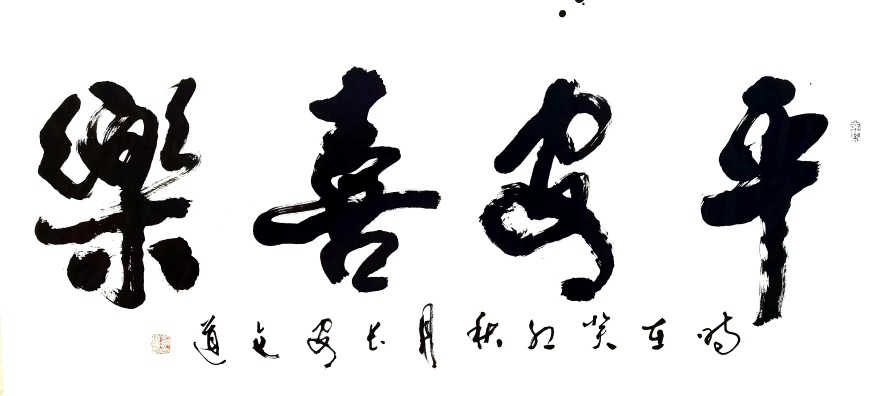 平安喜樂
時在癸卯秋月长安道